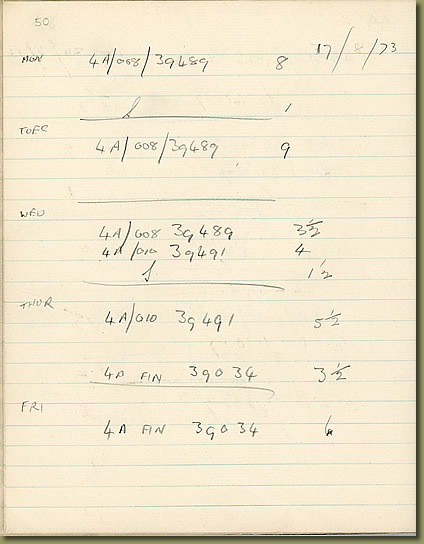 50
17/8/73
MON 4A/008/39489 8
S 1
TUES 4A/008/39489 9
WED
4A/008 39489 3½
4A/010 39491 4
S 1½
THUR
4A/010 39491 5½
4A FIN 39034 3½
FRI
4A FIN 39034